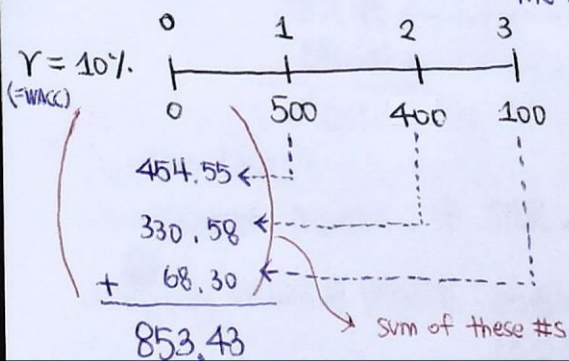 0 1 2 3
r = 10%.
(=WACC)
0 500 400 100
454.55
330.58
+ 68.30
853.43
sum of these #s